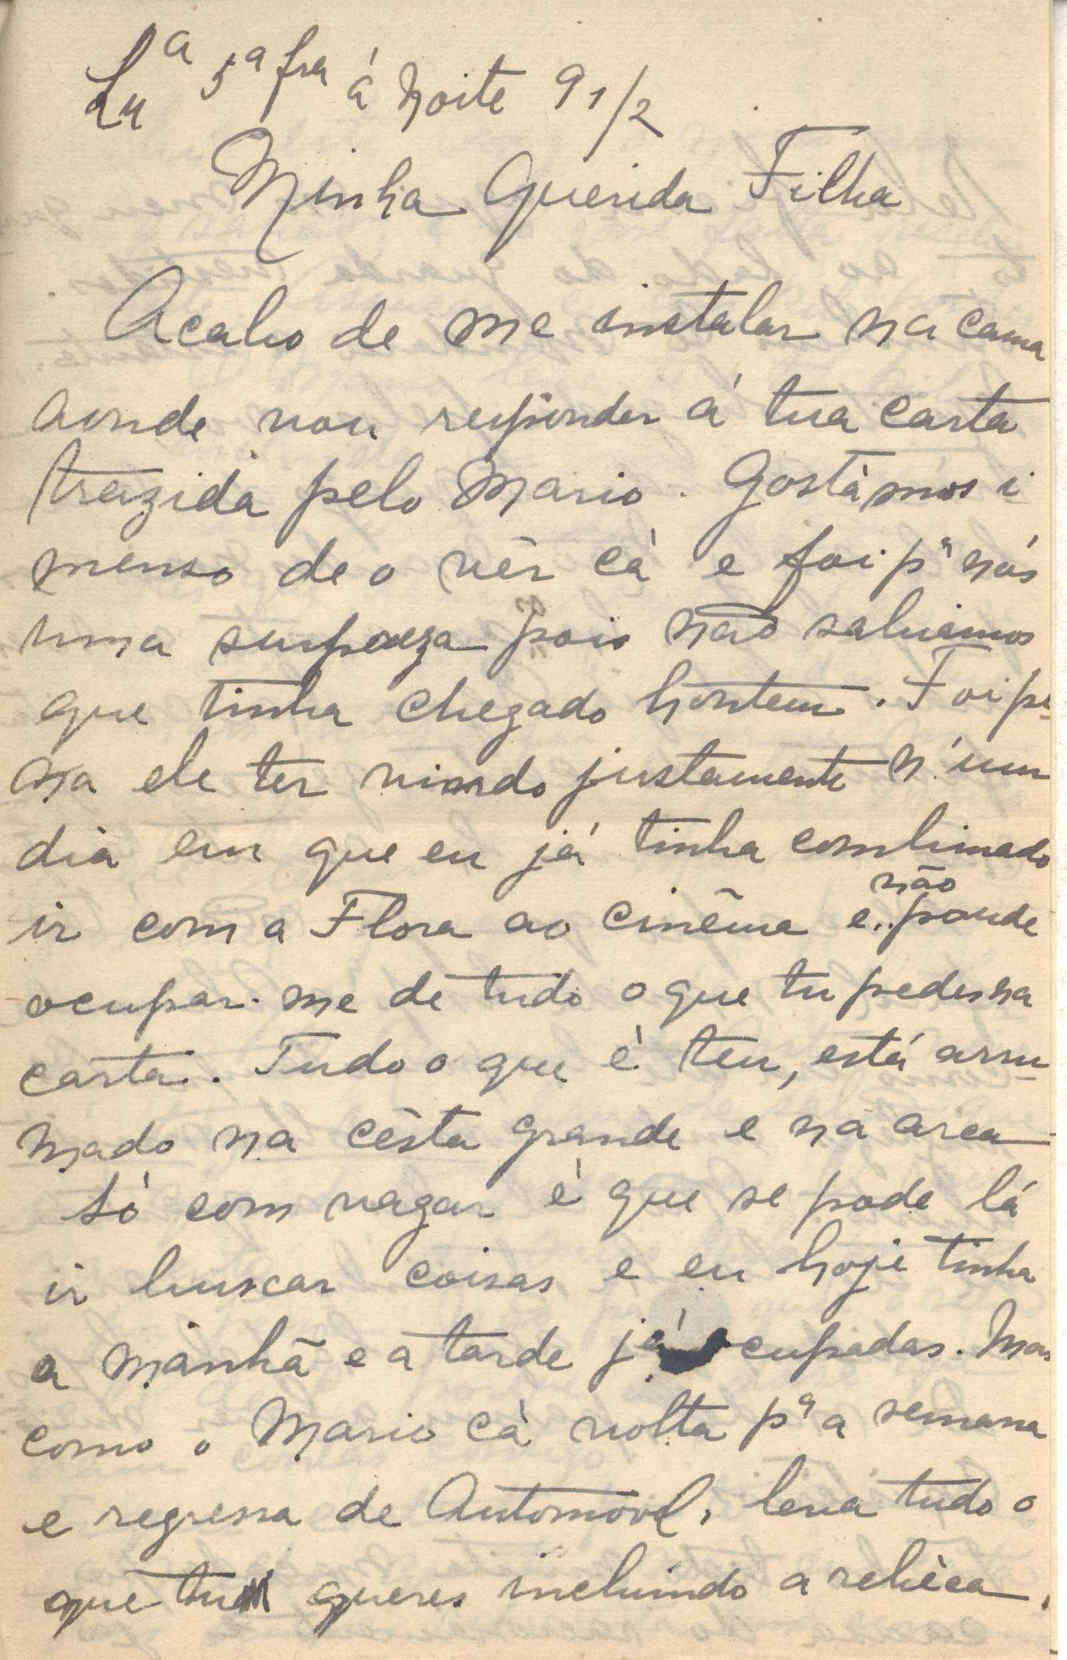 Lxª 5ª fra á noite 9 1/2
Minha Querida Filha
Acabo de me instalar na cama
aonde vou responder á tua carta
trazida pelo Mario. Gostàmos i
menso de o vêr cà e foi pª nós
uma surpreza pois não sabiamos
que tinha chegado hontem. Foi pe-
na ele ter vindo justamente n'um
dia em que eu já tinha combinado
ir com a Flora ao cinêma e não poude
ocupar-me de tudo o que tu pedes na
carta. Tudo o que è teu, está arru-
mado na cèsta grande e na arca
Sò com vagar è que se pode lá
ir buscar coisas e eu hoje tinha
a manhã e a tarde já ocupadas. Mas
como o Mario cà volta pª a semana
e regressa de Automovel, leva tudo o
que tu queres incluindo a rebèca.